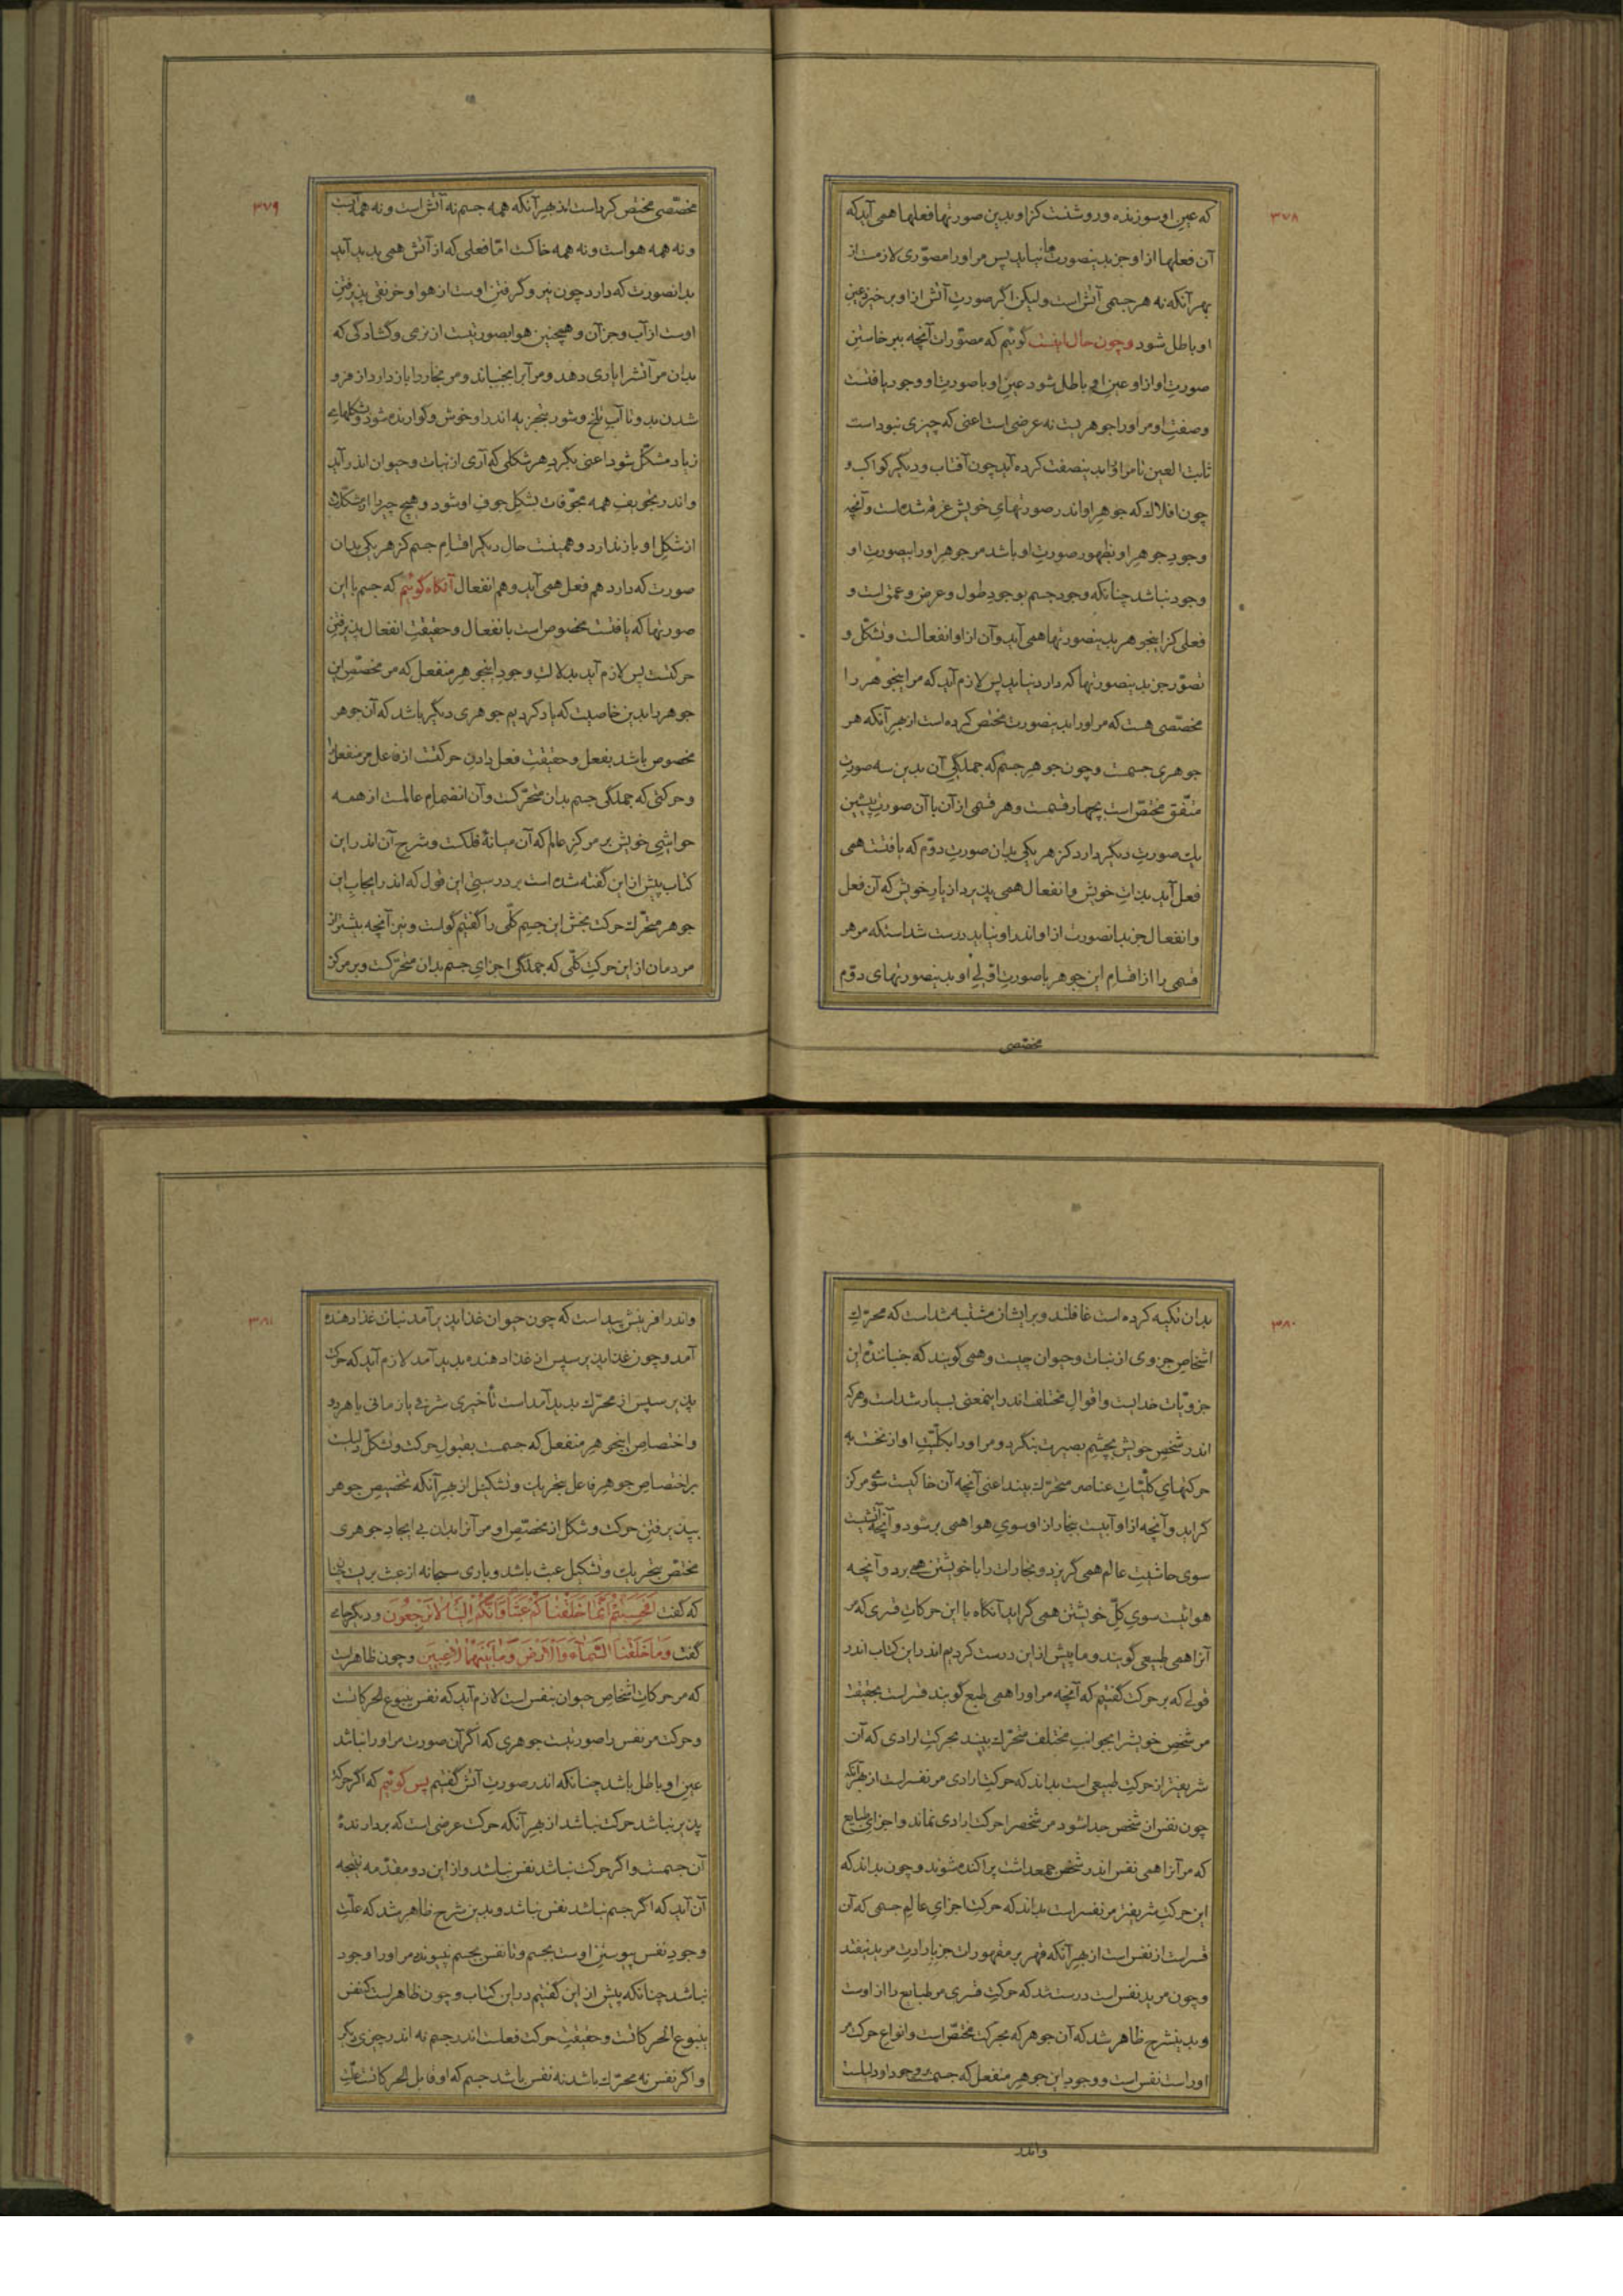 ۳۷۸
که عین او سوزنده و روشنست کزاو بدین صورتها فعلها همی آید که
آن فعلها از او جز بدینصورت‌ها نیاید پس مر اورا مصوّری لازمست از
بهر آنکه نه هر جسمی آتش است ولیکن اگر صورتِ آتش از او برخیزد عین
او باطل شود و چون حال اینست گوئیم که مصوّران آنچه ببرخاستنِ
صورتِ او از او عینِ او باطل شود عینِ او با صورتِ او وجود یافتست
و صفتِ او مر اورا جوهریست نه عرضی است اعنی که چیزی نبوداست
ثابت العین تا مر اورا بدینصفت کرده آید چون آفتاب و دیگر کواکب و
چون افلاک که جوهرِ او اندر صورتهایِ خویش غرقه شده است و آنچه
وجودِ جوهرِ او بظهورِ صورتِ او باشد مر جوهرِ اورا بیصورتِ او
وجود نباشد چنانکه وجودِ جسم بوجودِ طول و عرض و عمق است و
فعلی کز اینجوهر بدینصورتها همی آید و آن از او انفعالست و تشکّل و
تصوّر جز بدینصورتها که دارد نیاید پس لازم آید که مر اینجوهر را
مخصّصی هست که مر اورا بدینصورت مختصّ کرده است از بهرِ آنکه هر
جوهری جسمست و چون جوهرِ جسم که جملگیِ آن بدین سه صورتِ
متّفق مختصّ است بچهار قسمست و هر قسمی از آن با آن صورتِ پیشین
یک صورتِ دیگر دارد کز هر یکی بدان صورتِ دوّم که یافتست همی
فعل آید بذاتِ خویش و انفعال همی پذیرد از یارِ خویش که آن فعل
و انفعال جز بدانصورت از او اندر او نیاید درست شداست که مر هر
قسمی را از اقسامِ این جوهر با صورتِ اوّلیِ او بدینصورتهای دوّم
مخصّصی
۳۷۹
مخصّصی مختصّ کرداست از بهرِ آنکه همه جسم نه آتش است و نه همه آبست
و نه همه هواست و نه همه خاکست امّا فعلی که از آتش همی پدید آید
بدانصورت که دارد چون نیرو گرفتنِ اوست از هوا و حرنفی پذیرفتنِ
اوست از آب و جز آن و همچنین هوا بصورتیست از نرمی و گشادگی که
بدان مر آتش را یاری دهد و مر آبرا بجنباند و مر بخار را باز دارد از فرو
شدن بدو تا آبِ تلخ و شور بتجزیه اندر او خوش و گوارنده شود و بشکلهای
زیاد مشکّل شود اعنی بگردِ هر شکلی که آری از نبات و حیوان اندر آید
و اندر تجویفِ همه مجوّفات بشکلِ جوفِ او شود و هیچ چیز را از مشکّلات
از شکلِ او باز ندارد و همینست حال دیگر اقسامِ جسم کز هر یکی بدان
صورت که دارد هم فعل همی آید و هم انفعال آنگاه گوئیم که جسم با این
صورتها که یافتست مخصوص است بانفعال و حقیقتِ انفعال پذیرفتنِ
حرکتست پس لازم آید بدلالتِ وجودِ اینجوهرِ منفعل که مر مخصّصِ این
جوهر را بدین خاصیت که یاد کردیم جوهری دیگر باشد که آن جوهر
مخصوص باشد بفعل و حقیقتِ فعل دادنِ حرکتست از فاعل مر منفعل را
و حرکتی که جملگی جسم بدان متحرّکست و آن انضمامِ عالمست از همه
حواشیِ خویش بر مرکزِ عالم که آن میانهٔ فلکست و شرحِ آن اندر این
کتاب پیش از این گفته شده است بر درستیِ این قول که اندر ایجابِ این
جوهرِ متحرّک حرکت بخشِ این جسمِ کلّی را گفتیم گواست و نیز آنچه بیشتر از
مردمان از این حرکتِ کلّی که جملگیِ اجزایِ جسم بدان متحرّکست و بر مرکز
۳۸۰
بدان تکیه کرده است غافلند و بر ایشان مشتبه شداست که محرّکِ
اشخاصِ جزوی از نبات و حیوان چیست و همی گویند که جنبانندهٔ این
جزویّات خدایست و اقوالِ مختلف اندر اینمعنی بسیار شداست و هرکه
اندر شخصِ خویش بچشمِ بصیرت بنگرد و مر اورا بکلّیّتِ او از نخست به
حرکتهایِ کلّیّاتِ عناصر متحرّک بیند اعنی آنچه آن خاکیست سوی مرکز
گراید و آنچه از او آبیست بخار از او سویِ هوا همی بر شود و آنچه آتشیست
سوی حاشیتِ عالم همی گریزد و بخارات را با خویشتن همی برد و آنچه
هوائیست سویِ کلّ خویشتن همی گراید آنگاه با این حرکاتِ قسری که مر
آنرا همی طبیعی گویند و ما پیش از این درست کردیم اندر این کتاب اندر
قولی که بر حرکت گفتیم که آنچه مر اورا همی طبع گویند قسر است بحقیقت
مر شخصِ خویشرا بجوانبِ مختلف متحرّک بیند بحرکتِ ارادی که آن
شریفتر از حرکتِ طبیعی است بداند که حرکتِ ارادی مر نفس راست از بهرِ آنکه
چون نفس از شخص جدا شود مر شخص را حرکتِ ارادی نماند و اجزایِ طبایع
که مر آنرا همی نفس اندر شخص جمع داشت پراکنده شوند و چون بداند که
این حرکتِ شریفتر مر نفس راست بداند که حرکتِ اجزایِ عالمِ جسمی که آن
قسر است از نفس است از بهرِ آنکه قهر بر مقهورات جز بارادتِ مرید نیفتد
و چون مرید نفس است درست شد که حرکتِ قسری مر طبایع را از اوست
و بدینشرح ظاهر شد که آن جوهر که بحرکت مختصّ است و انواعِ حرکت مر
اوراست نفس است و وجودِ این جوهرِ منفعل که جسمست بر وجودِ او دلیلست
و اندر
۳۸۱
و اندر آفرینش پیداست که چون حیوان غذا پذیر آمد نبات غذا دهنده
آمد و چون غذا پذیر سپس از غذا دهنده پدید آمد لازم آید که حرکت
پذیر سپس از محرّک پدید آمداست تأخیری شرفی یا زمانی یا هر دو
و اختصاصِ اینجوهرِ منفعل که جسمست بقبولِ حرکت و تشکّل دلیلست
بر اختصاصِ جوهرِ فاعل بتحریک و تشکیل از بهرِ آنکه تخصیصِ جوهر
بپذیرفتنِ حرکت و شکل از مخصّصِ او مر آنرا بدان بی ایجادِ جوهری
مختصّ بتحریک و تشکیل عبث باشد و باری سبحانه از عبث بریست چنا
که گفت أَفَحَسِبْتُمْ أَنَّمَا خَلَقْنَاكُمْ عَبَثًا وَأَنَّكُمْ إِلَيْنَا لَا تُرْجَعُونَ و دیگر جای
گفت وَمَا خَلَقْنَا السَّمَاءَ وَالْأَرْضَ وَمَا بَيْنَهُمَا لَاعِبِينَ و چون ظاهر است
که مر حرکاتِ اشخاصِ حیوان بنفس است لازم آید که نفس ینبوع الحرکاتست
و حرکت مر نفس را صورتیست جوهری که اگر آن صورت مر اورا نباشد
عینِ او باطل باشد چنانکه اندر صورتِ آتش گفتیم پس گوئیم که اگر حرکت
پذیر نباشد حرکت نباشد از بهرِ آنکه حرکت عرضی است که بردارندهٔ
آن جسمست و اگر حرکت نباشد نفس نباشد و از این دو مقدّمه نتیجه
آن آید که اگر جسم نباشد نفس نباشد و بدین شرح ظاهر شد که علّتِ
وجودِ نفس پیوستنِ اوست بجسم و تا نفس بجسم نپیوندد مر اورا وجود
نباشد چنانکه پیش از این گفتیم در این کتاب و چون ظاهر است که نفس
ینبوع الحرکاتست و حقیقتِ حرکت فعلست اندر جسم نه اندر چیزی دیگر
و اگر نفس نه محرّک باشد نه نفس باشد جسم که او قابل الحرکاتست علّتِ